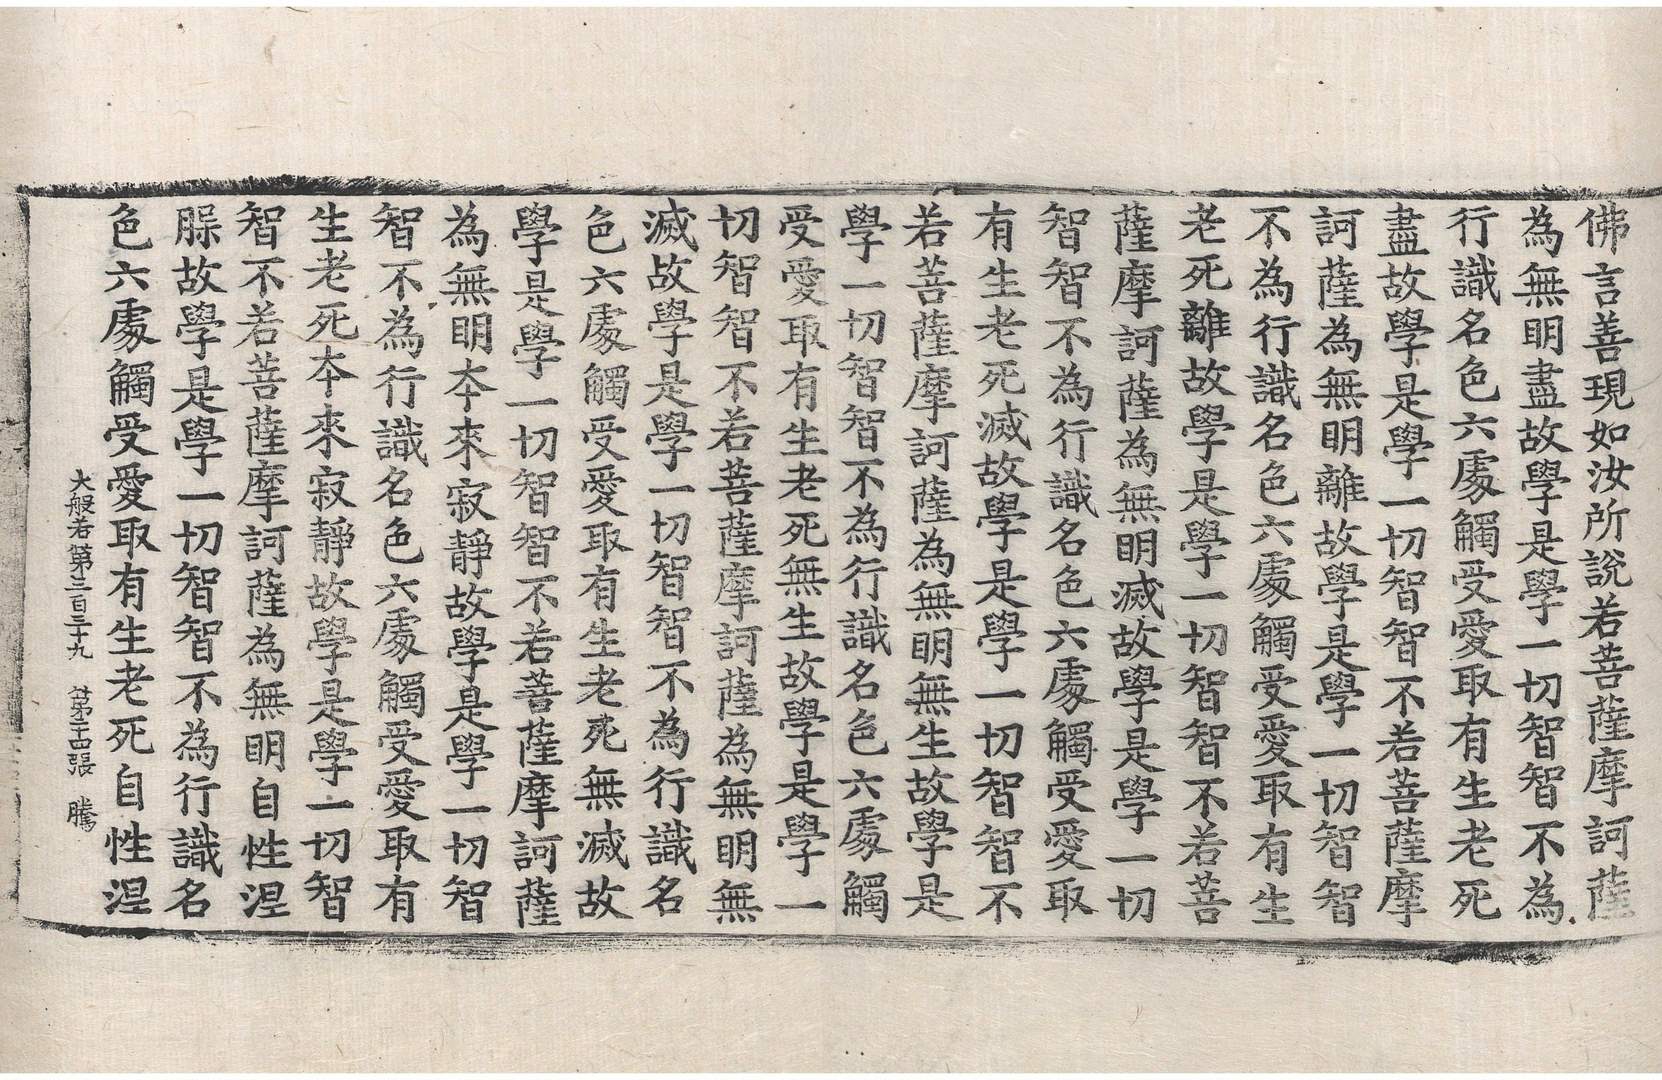 佛言善現如汝所說若菩薩摩訶薩
為無眀盡故學是學一切智智不為
行識名色六處觸受愛取有生老死
盡故學是學一切智智不若菩薩摩
訶薩為無眀離故學是學一切智智
不為行識名色六處觸受愛取有生
老死離故學是學一切智智不若菩
薩摩訶薩為無眀滅故學是學一切
智智不為行識名色六處觸受愛取
有生老死滅故學是學一切智智不
若菩薩摩訶薩為無眀無生故學是
學一切智智不為行識名色六處觸
受愛取有生老死無生故學是學一
切智智不若菩薩摩訶薩為無眀無
滅故學是學一切智智不為行識名
色六處觸受愛取有生老死無滅故
學是學一切智智不若菩薩摩訶薩
為無眀夲來寂靜故學是學一切智
智不為行識名色六處觸受愛取有
生老死夲來寂靜故學是學一切智
智不若菩薩摩訶薩為無眀自性涅
故學是學一切智智不為行識名
色六處觸受愛取有生老死自性涅
大般若第三百三十九 第二十四張 騰